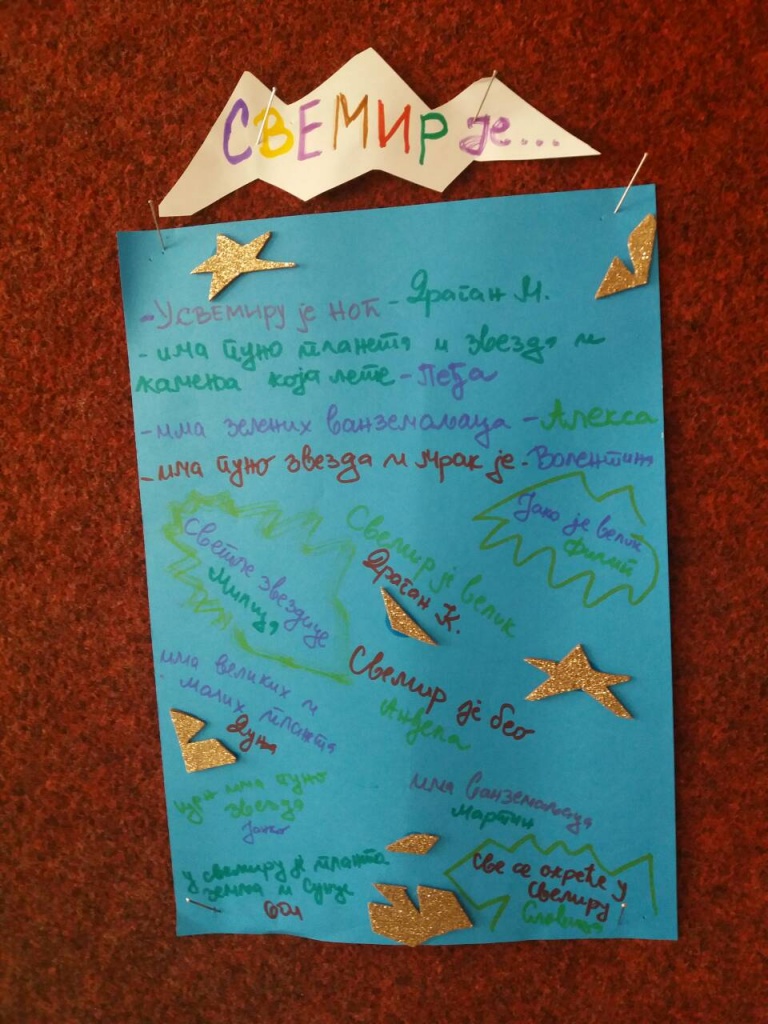 СВЕМИР је...
- У СВЕМИРУ је НОЋ - Драган М.
- има пуно планета и звезда и
камења која лете - Пеђа
- има зелених ванземаљаца - Алекса
- има пуно звезда и мрак је - Валентина
Јако је велик
Филип
Светле звездице
Милица
Свемир је велик
Драган К.
има великих и
малих планета
Дуња
Свемир је бео
Анђела
црн има пуно
звезда
има ванземаљаца
Мартин
у свемиру је планета
земља и Сунце
Све се окреће у
Свемиру